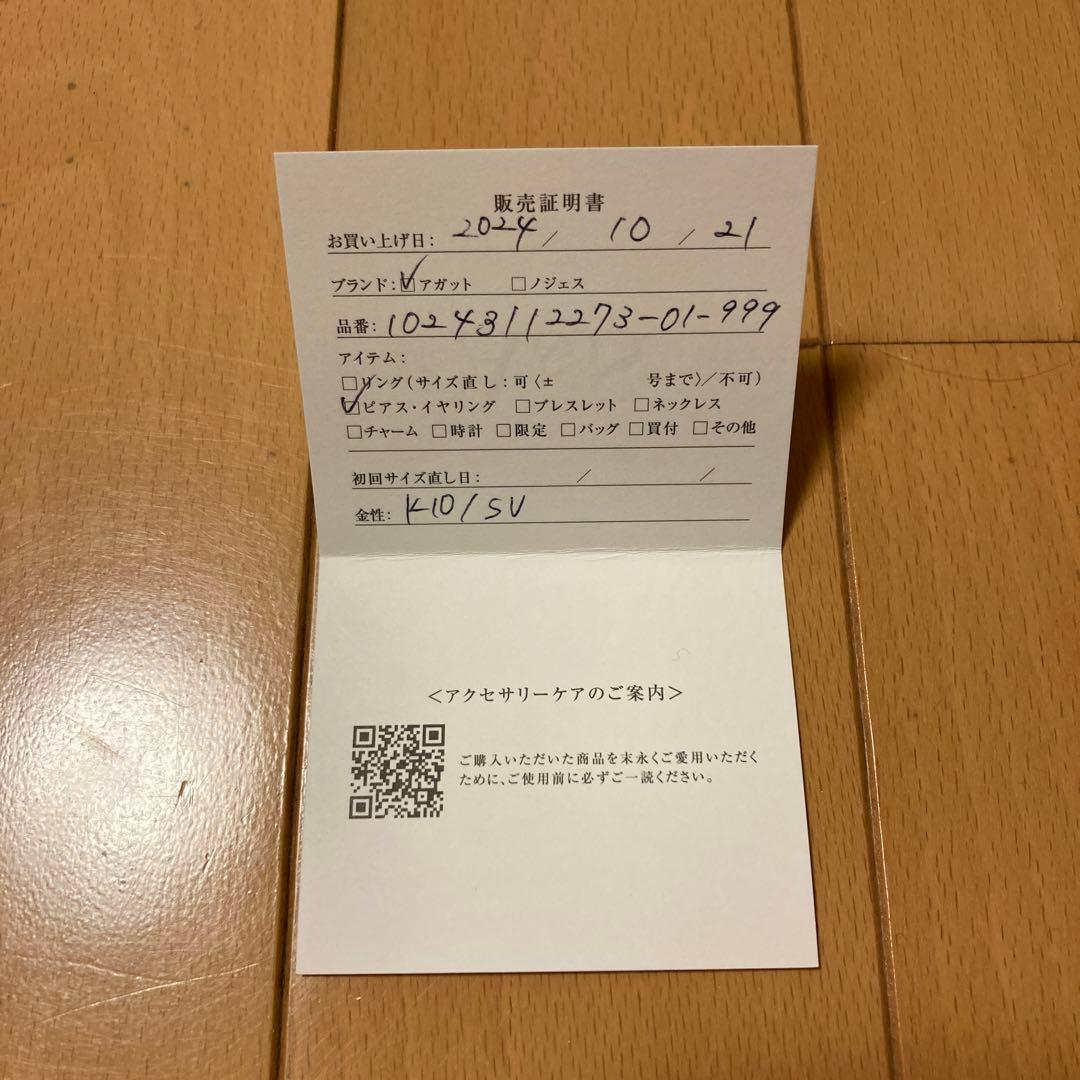 販売証明書
お買い上げ日: 2024 / 10 / 21
ブランド: ☑アガット □ノジェス
品番: 10243112273-01-999
アイテム:
□リング(サイズ直し: 可〈± 号まで〉/不可)
☑ピアス・イヤリング □ブレスレット □ネックレス
□チャーム □時計 □限定 □バッグ □買付 □その他
初回サイズ直し日: / /
金性: K10/SV
<アクセサリーケアのご案内>
ご購入いただいた商品を末永くご愛用いただく
ために、ご使用前に必ずご一読ください。